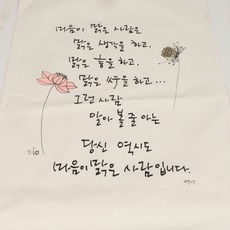 마음이 맑은 사람은
맑은 생각을 하고,
맑은 言을 하고,
맑은 行를 하고...
그런 사람
알아 볼 줄 아는
당신 역시도
마음이 맑은 사람입니다.